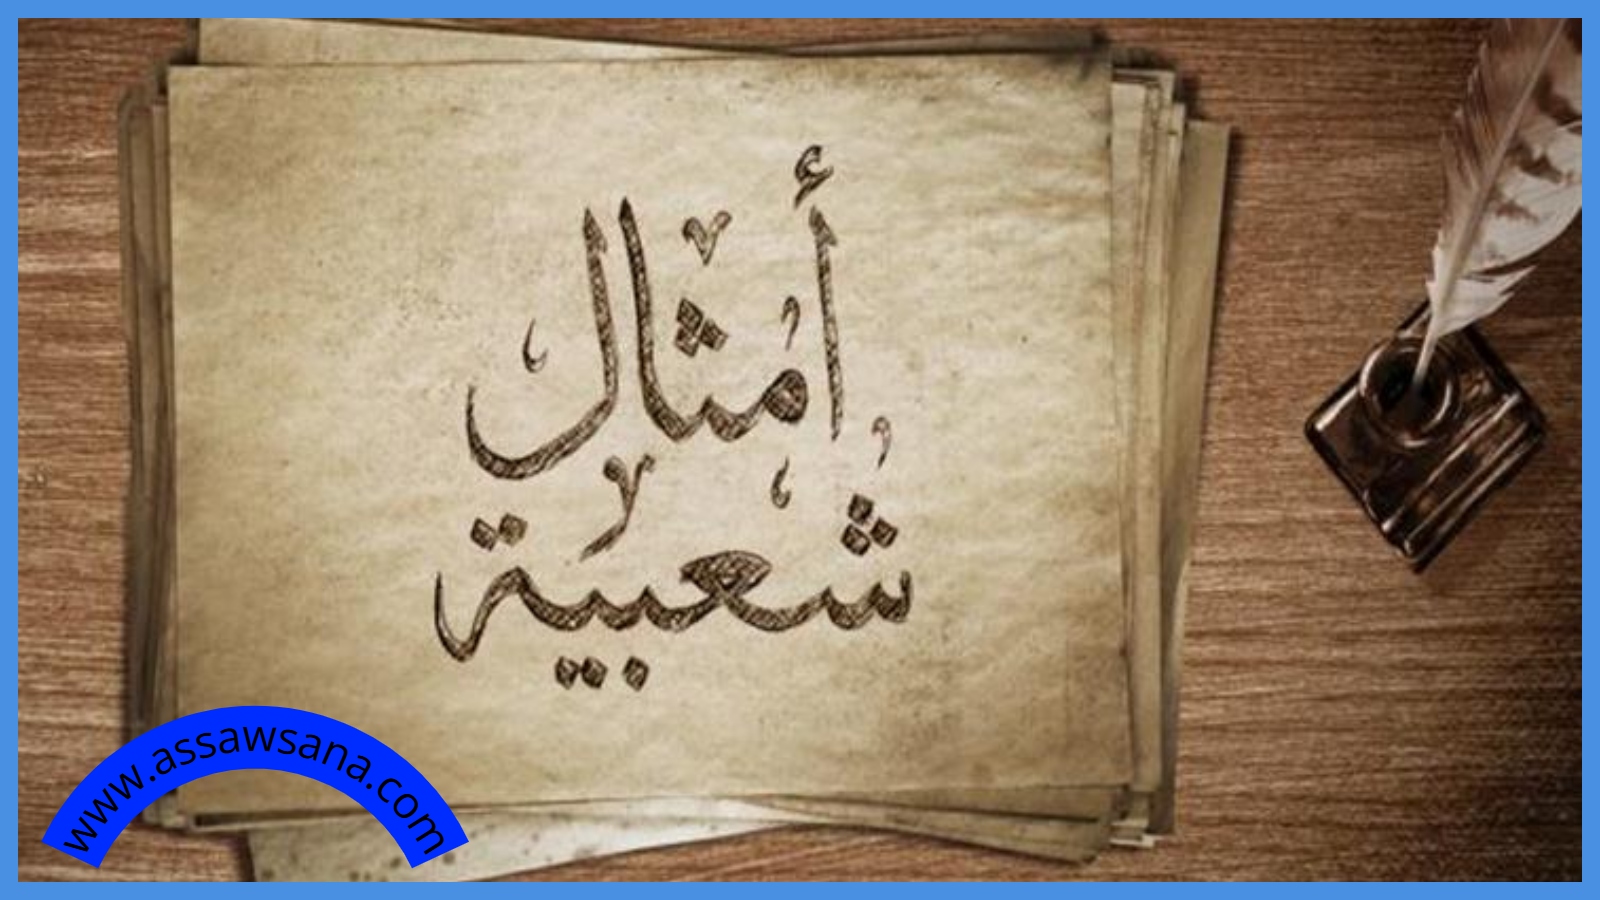 أمثال
شعبية
www.assawsana.com